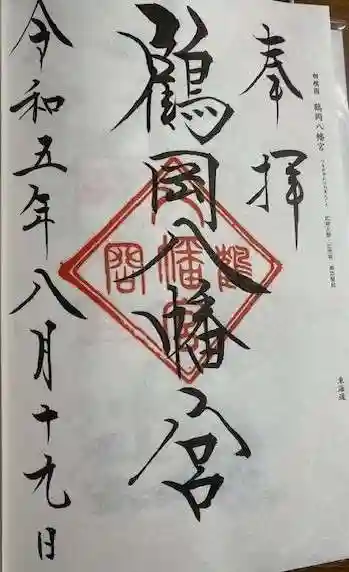 相模国 鶴岡八幡宮
東海道
奉拝
鶴岡八幡宮
鶴岡八幡宮
令和五年八月十九日